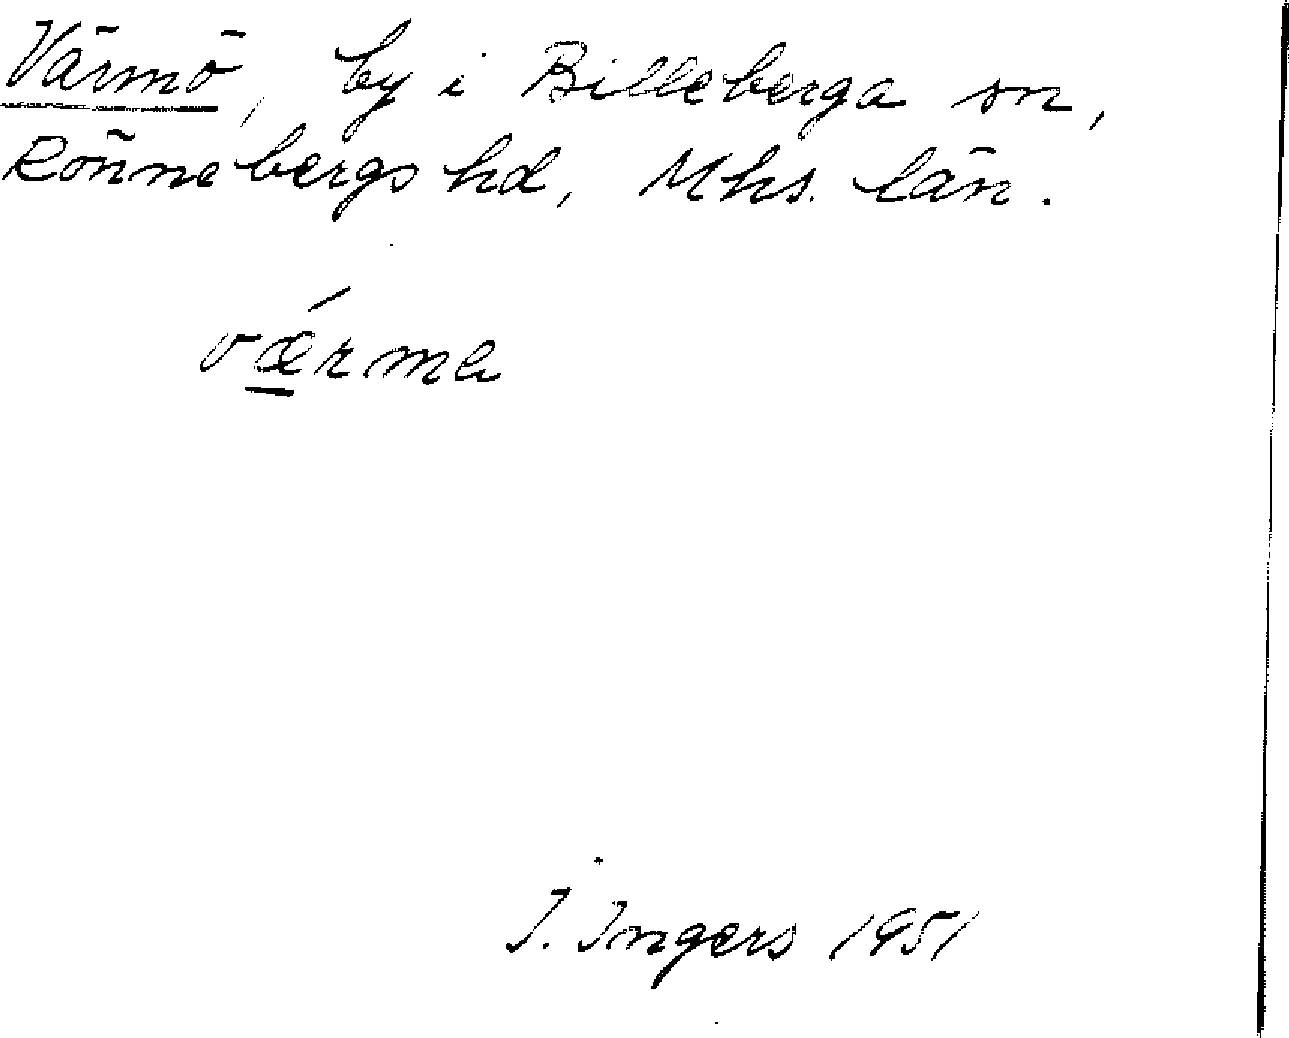 Värmö, by i Billeberga sn,
Rönnebergs hd, Mhs. län.
vǽ̱rma
I. Ingers 1951